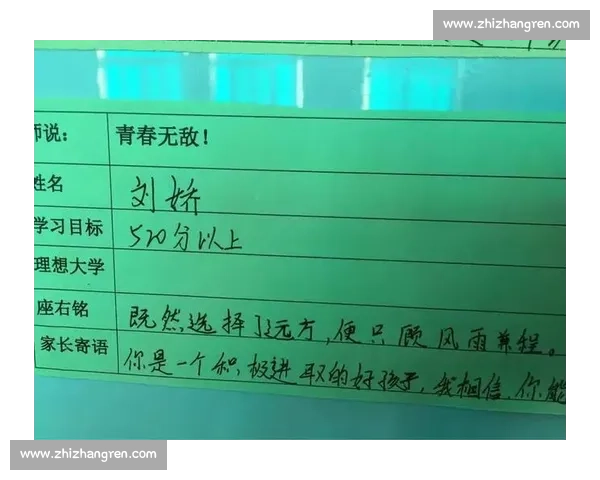 www.zhizhangren.com
师说： 青春无敌！
姓名 刘娇
学习目标 520分以上
理想大学
座右铭 既然选择了远方，便只顾风雨兼程。
家长寄语 你是一个积极进取的好孩子，我相信，你能
www.zhizhangren.com